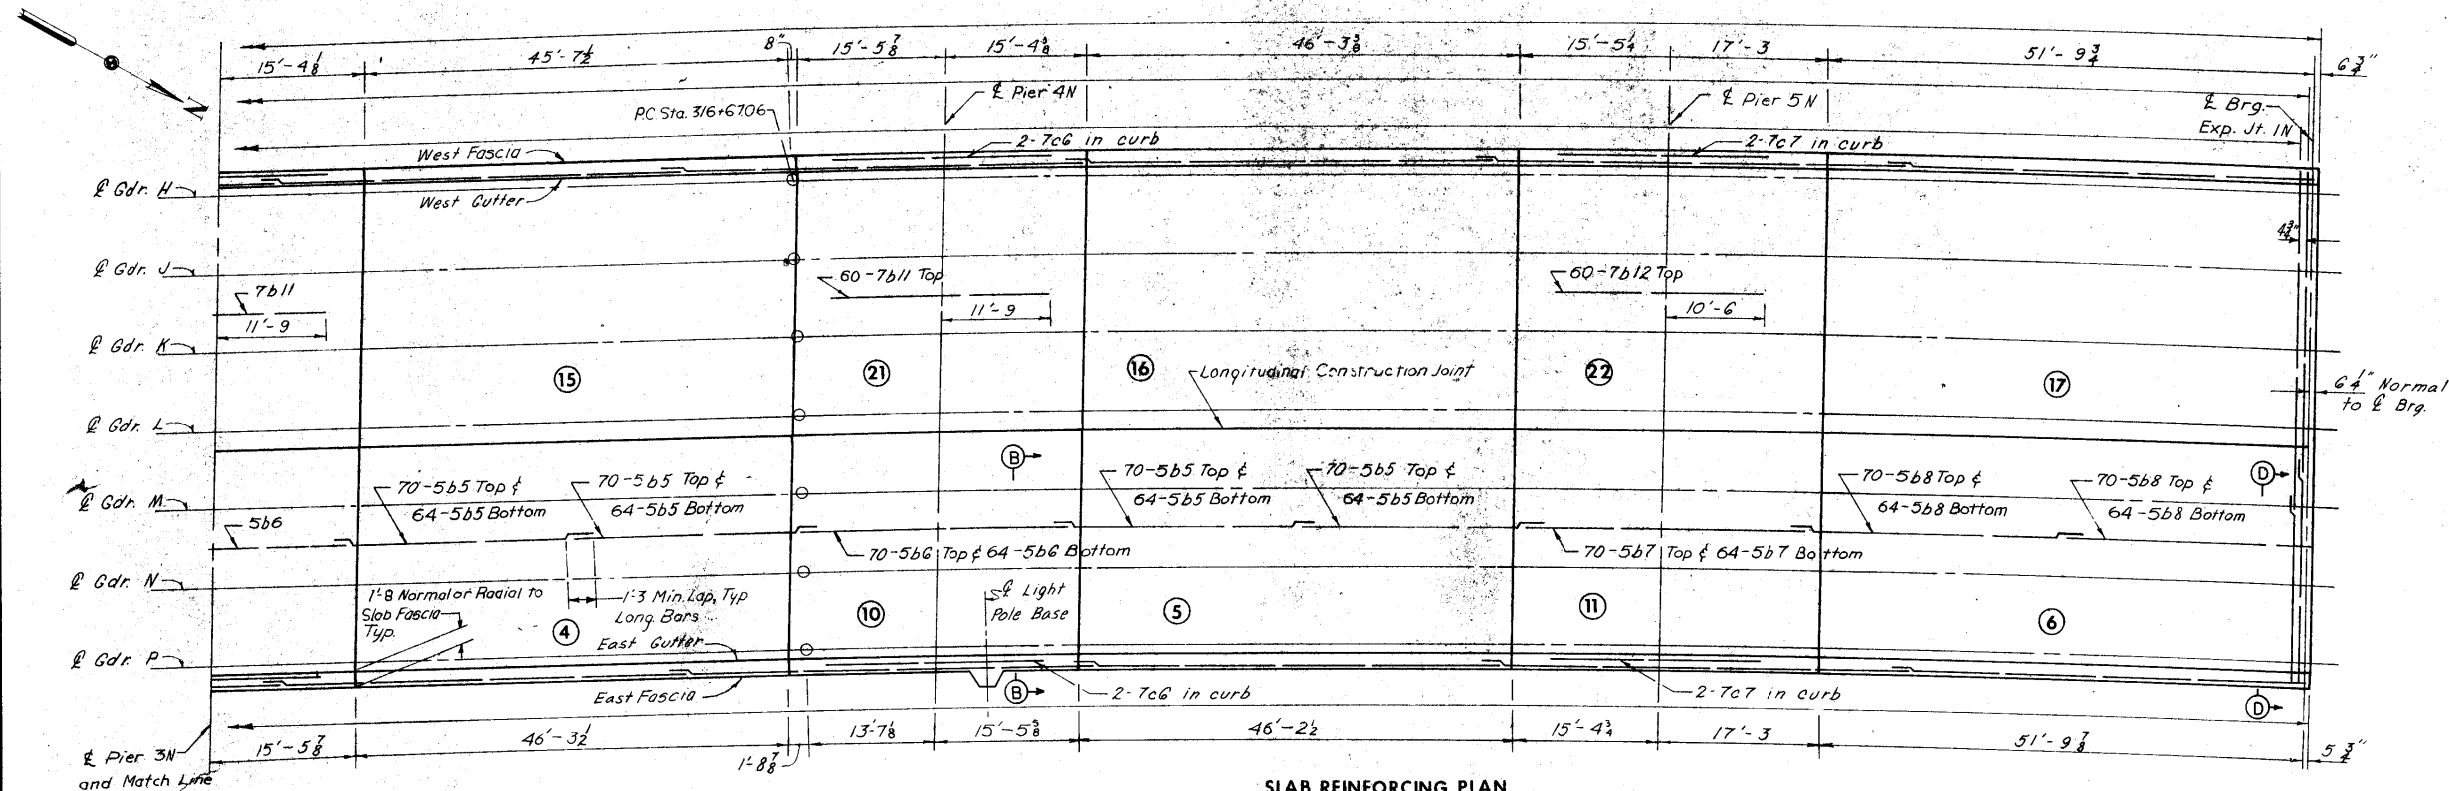 15'-4 1/8
45'-7 1/2
8"
15'-5 7/8
15'-4 3/8
46'-3 3/8
15'-5 1/4
17'-3
51'-9 3/4
6 3/4"
N
P.C. Sta. 316+67.06
℄ Pier 4N
℄ Pier 5N
℄ Brg.
Exp. Jt. 1N
West Fascia
2-7c6 in curb
2-7c7 in curb
℄ Gdr. H
West Gutter
4 3/4"
℄ Gdr. J
7b11
60-7b11 Top
60-7b12 Top
11'-9
11'-9
10'-6
℄ Gdr. K
15
21
16
Longitudinal Construction Joint
22
17
6 1/4" Normal
to ℄ Brg.
℄ Gdr. L
B
D
℄ Gdr. M
70-5b5 Top &
64-5b5 Bottom
70-5b5 Top &
64-5b5 Bottom
70-5b5 Top &
64-5b5 Bottom
70-5b5 Top &
64-5b5 Bottom
70-5b8 Top &
64-5b8 Bottom
70-5b8 Top &
64-5b8 Bottom
5b6
70-5b6 Top & 64-5b6 Bottom
70-5b7 Top & 64-5b7 Bottom
℄ Gdr. N
1'-8 Normal or Radial to
Slab Fascia
Typ.
1'-3 Min. Lap, Typ
Long. Bars
℄ Light
Pole Base
4
10
5
11
6
East Gutter
℄ Gdr. P
East Fascia
B
2-7c6 in curb
2-7c7 in curb
D
℄ Pier 3N
and Match Line
15'-5 7/8
46'-3 1/2
1'-8 7/8
13'-7 1/8
15'-5 5/8
46'-2 1/2
15'-4 3/4
17'-3
51'-9 7/8
5 3/4"
SLAB REINFORCING PLAN